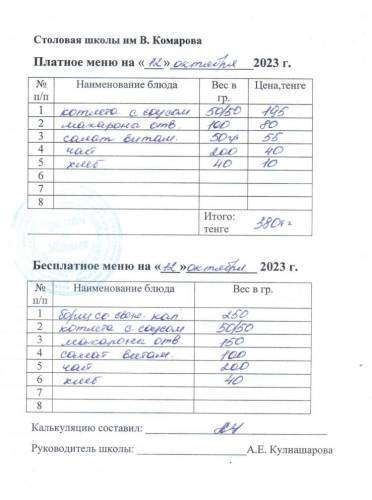 Столовая школы им В. Комарова
Платное меню на «12» октября 2023 г.
№ п/п Наименование блюда Вес в гр. Цена,тенге
1 котлета с соусом 50/50 195
2 макарона отв 100 80
3 салат витам. 50гр 55
4 чай 200 40
5 хлеб 40 10
6
7
8
Итого: тенге 380тг
Бесплатное меню на «12» октября 2023 г.
№ п/п Наименование блюда Вес в гр.
1 борщ со свеж. кап. 250
2 котлета с соусом 50/50
3 макарона отв. 150
4 салат витам. 100
5 чай 200
6 хлеб 40
7
8
Калькуляцию составил:
Руководитель школы: А.Е. Кулнашарова